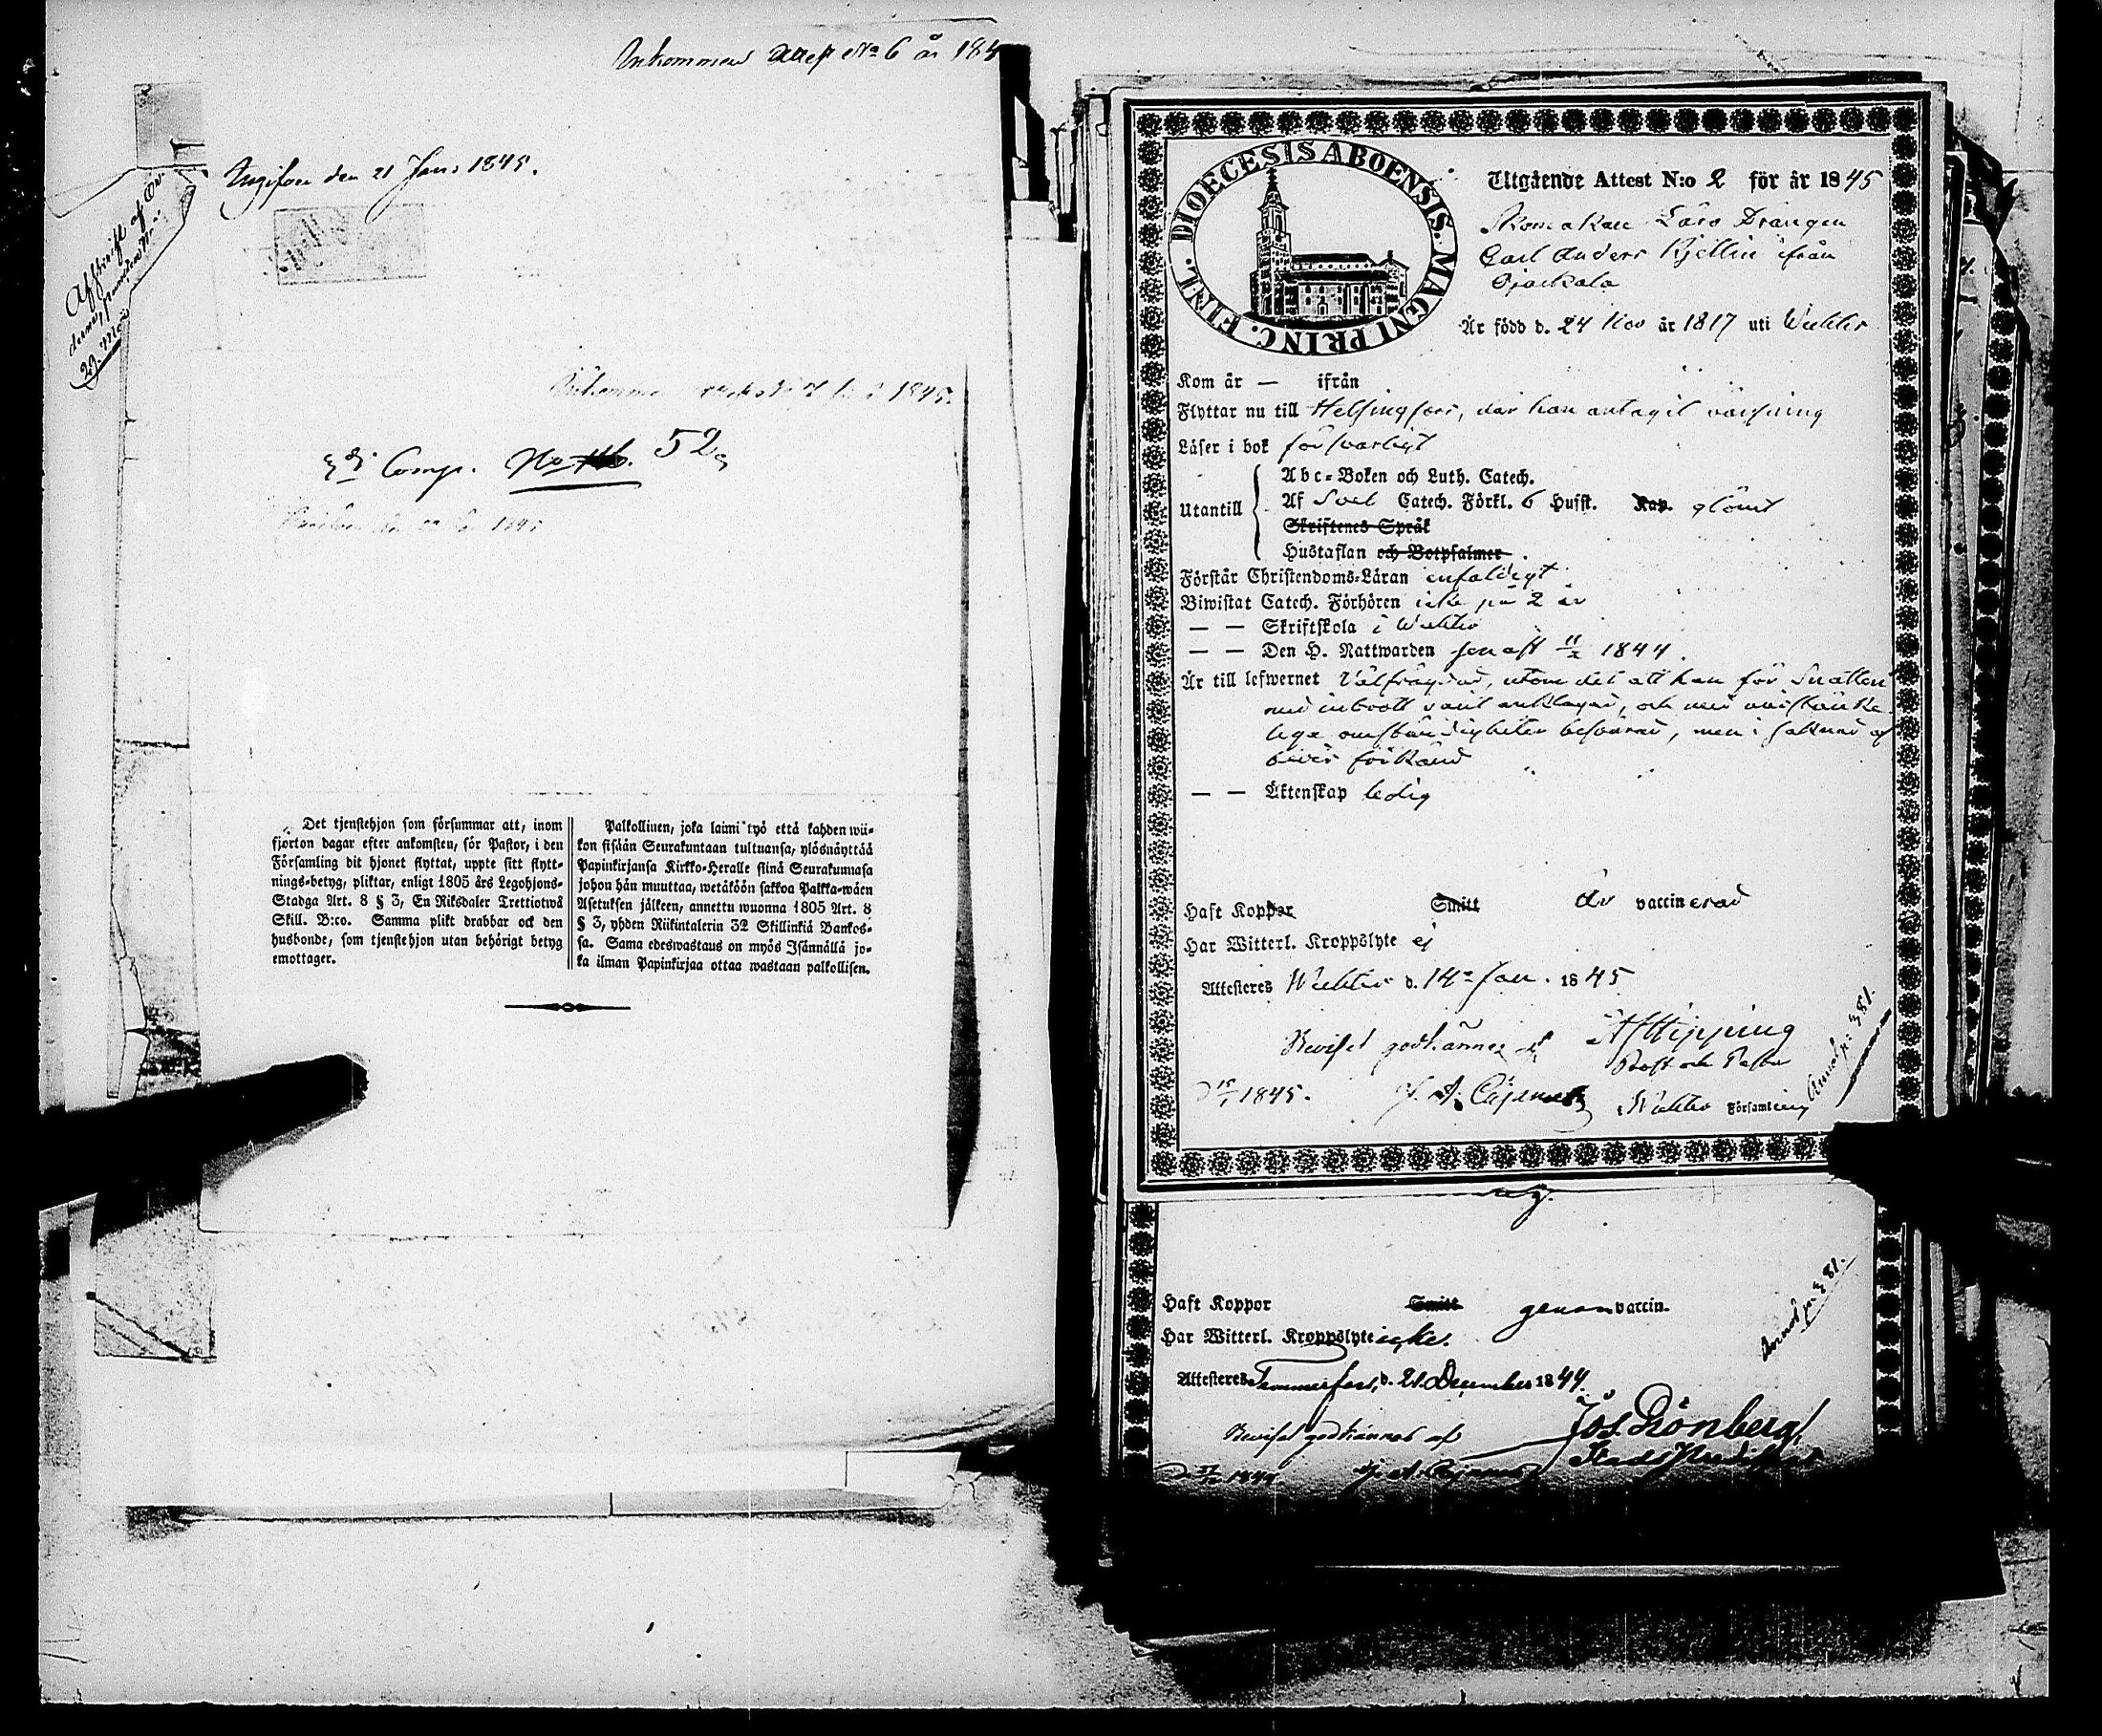 Inkommen Attest No 6 år 184
Uppifven den 21 Jan: 1845.
Affskrift af
29. Maj
Inkommen 1845.
Comp. No 52
Det tjenstehjon som försummar att, inom
fjorton dagar efter ankomsten, för Pastor, i den
Församling dit hjonet flyttat, uppte sitt flytt-
nings-betyg, pliktar, enligt 1805 års Legohjons-
Stadga Art. 8 § 3, En Riksdaler Trettiotwå
Skill. B:co. Samma plikt drabbar ock den
husbonde, som tjenstehjon utan behörigt betyg
emottager.
Palkollinen, joka laimi työ että kahden wii-
kon sisään Seurakuntaan tultuansa, ylösnäyttää
Papinkirjansa Kirkko-Heralle siinä Seurakunnasa
johon hän muuttaa, wetäköön sakkoa Palkka-wäen
Asetuksen jälkeen, annettu wuonna 1805 Art. 8
§ 3, yhden Riikintalerin 32 Skillinkiä Bankos-
sa. Sama edeswastaus on myös Isännällä jo-
ka ilman Papinkirjaa ottaa wastaan palkollisen.
DIOECESIS ABOENSIS. MAGNI PRINC. FINL.
Utgående Attest N:o 2 för år 1845
Skomakare Läro Drängen
Carl Anders Kjellin ifrån
Ojackala
Är född d. 24 Nov år 1817 uti Wichtis
Kom år — ifrån
Flyttar nu till Helsingfors, där han antagit värfning
Läser i bok försvarligt
Utantill
Abc-Boken och Luth. Catech.
Af Svel Catech. Förkl. 6 Hufst. Kap. glömt
Skriftenes Språk
Hustaflan och Botpsalmer.
Förstår Christendoms-Läran enfaldigt
Biwistat Catech. Förhören icke på 2 år
— — Skriftskola i Wichtis
— — Den H. Nattwarden senast 11/2 1844.
Är till lefwernet Välfrägdad, utom det att han för Snatteri
med inbrott varit anklagad, och med misstänke-
liga omständigheter besvärad, men i saknad af
bevis frikänd
— — Äktenskap ledig
Haft Koppor Smitt är vaccinerad
Har Witterl. Kroppslyte ej
Attesteras Wichtis d. 14 Jan. 1845
Beviset godkännes af AJ Hipping
Prost och Pastor
d 15/1 1845. J. A. Cajanus Wichtis Församling
Annot p: 381.
Haft Koppor Smitt genom vaccin.
Har Witterl. Kroppslyte icke.
Attesteras Tammerfors, d. 21 December 1844.
Beviset godkännes af Jos. Grönberg
Stads Predikant
1844 J. A. Cajanus
Annot p: 381.